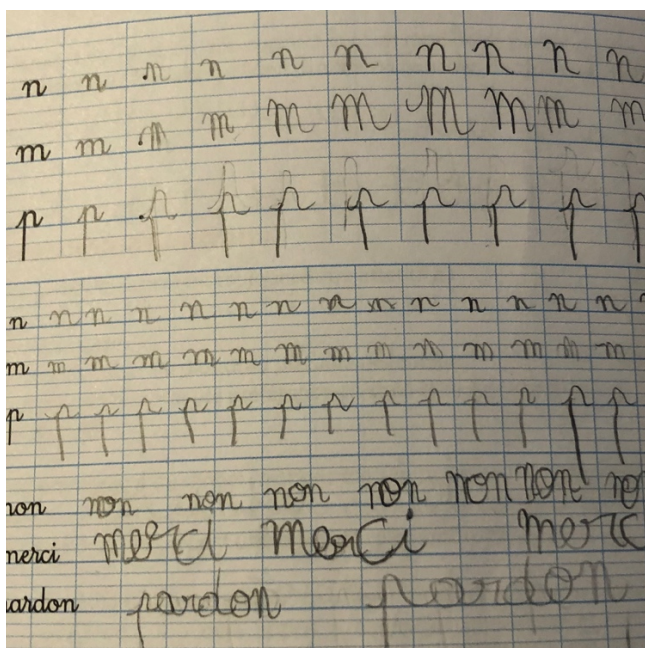 n n n n n n n n n n
m m m m m m m m m m
p p p p p p p p p p
n n n n n n n n m n n n n n
m m m m m m m m m m m m m m
p p p p p p p p p p p p p p
non non non non non non non no
merci merci merci merc
ardon pardon pardon